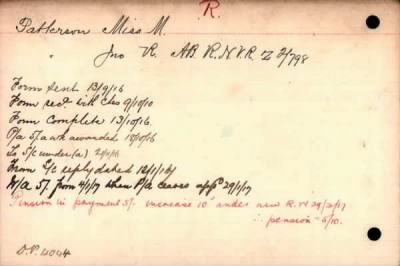 R.
Patterson Miss M.
" Jno R. AB. R.N.V.R. Z 2/798
Form sent 13/9/16
Form recd with Ctes 9/10/10
Form Complete 13/10/16.
P/a 5/. a wk awarded 18/10/16
To S/C under (a)
From S/C reply dated 12/1/17
W/a 5/. from 4/1/17 when P/a ceases appd 29/1/17
Pension in payment 5/- increase 10d under new R.W 29/3/17
∴ pension 5/10.
D.P. 4044